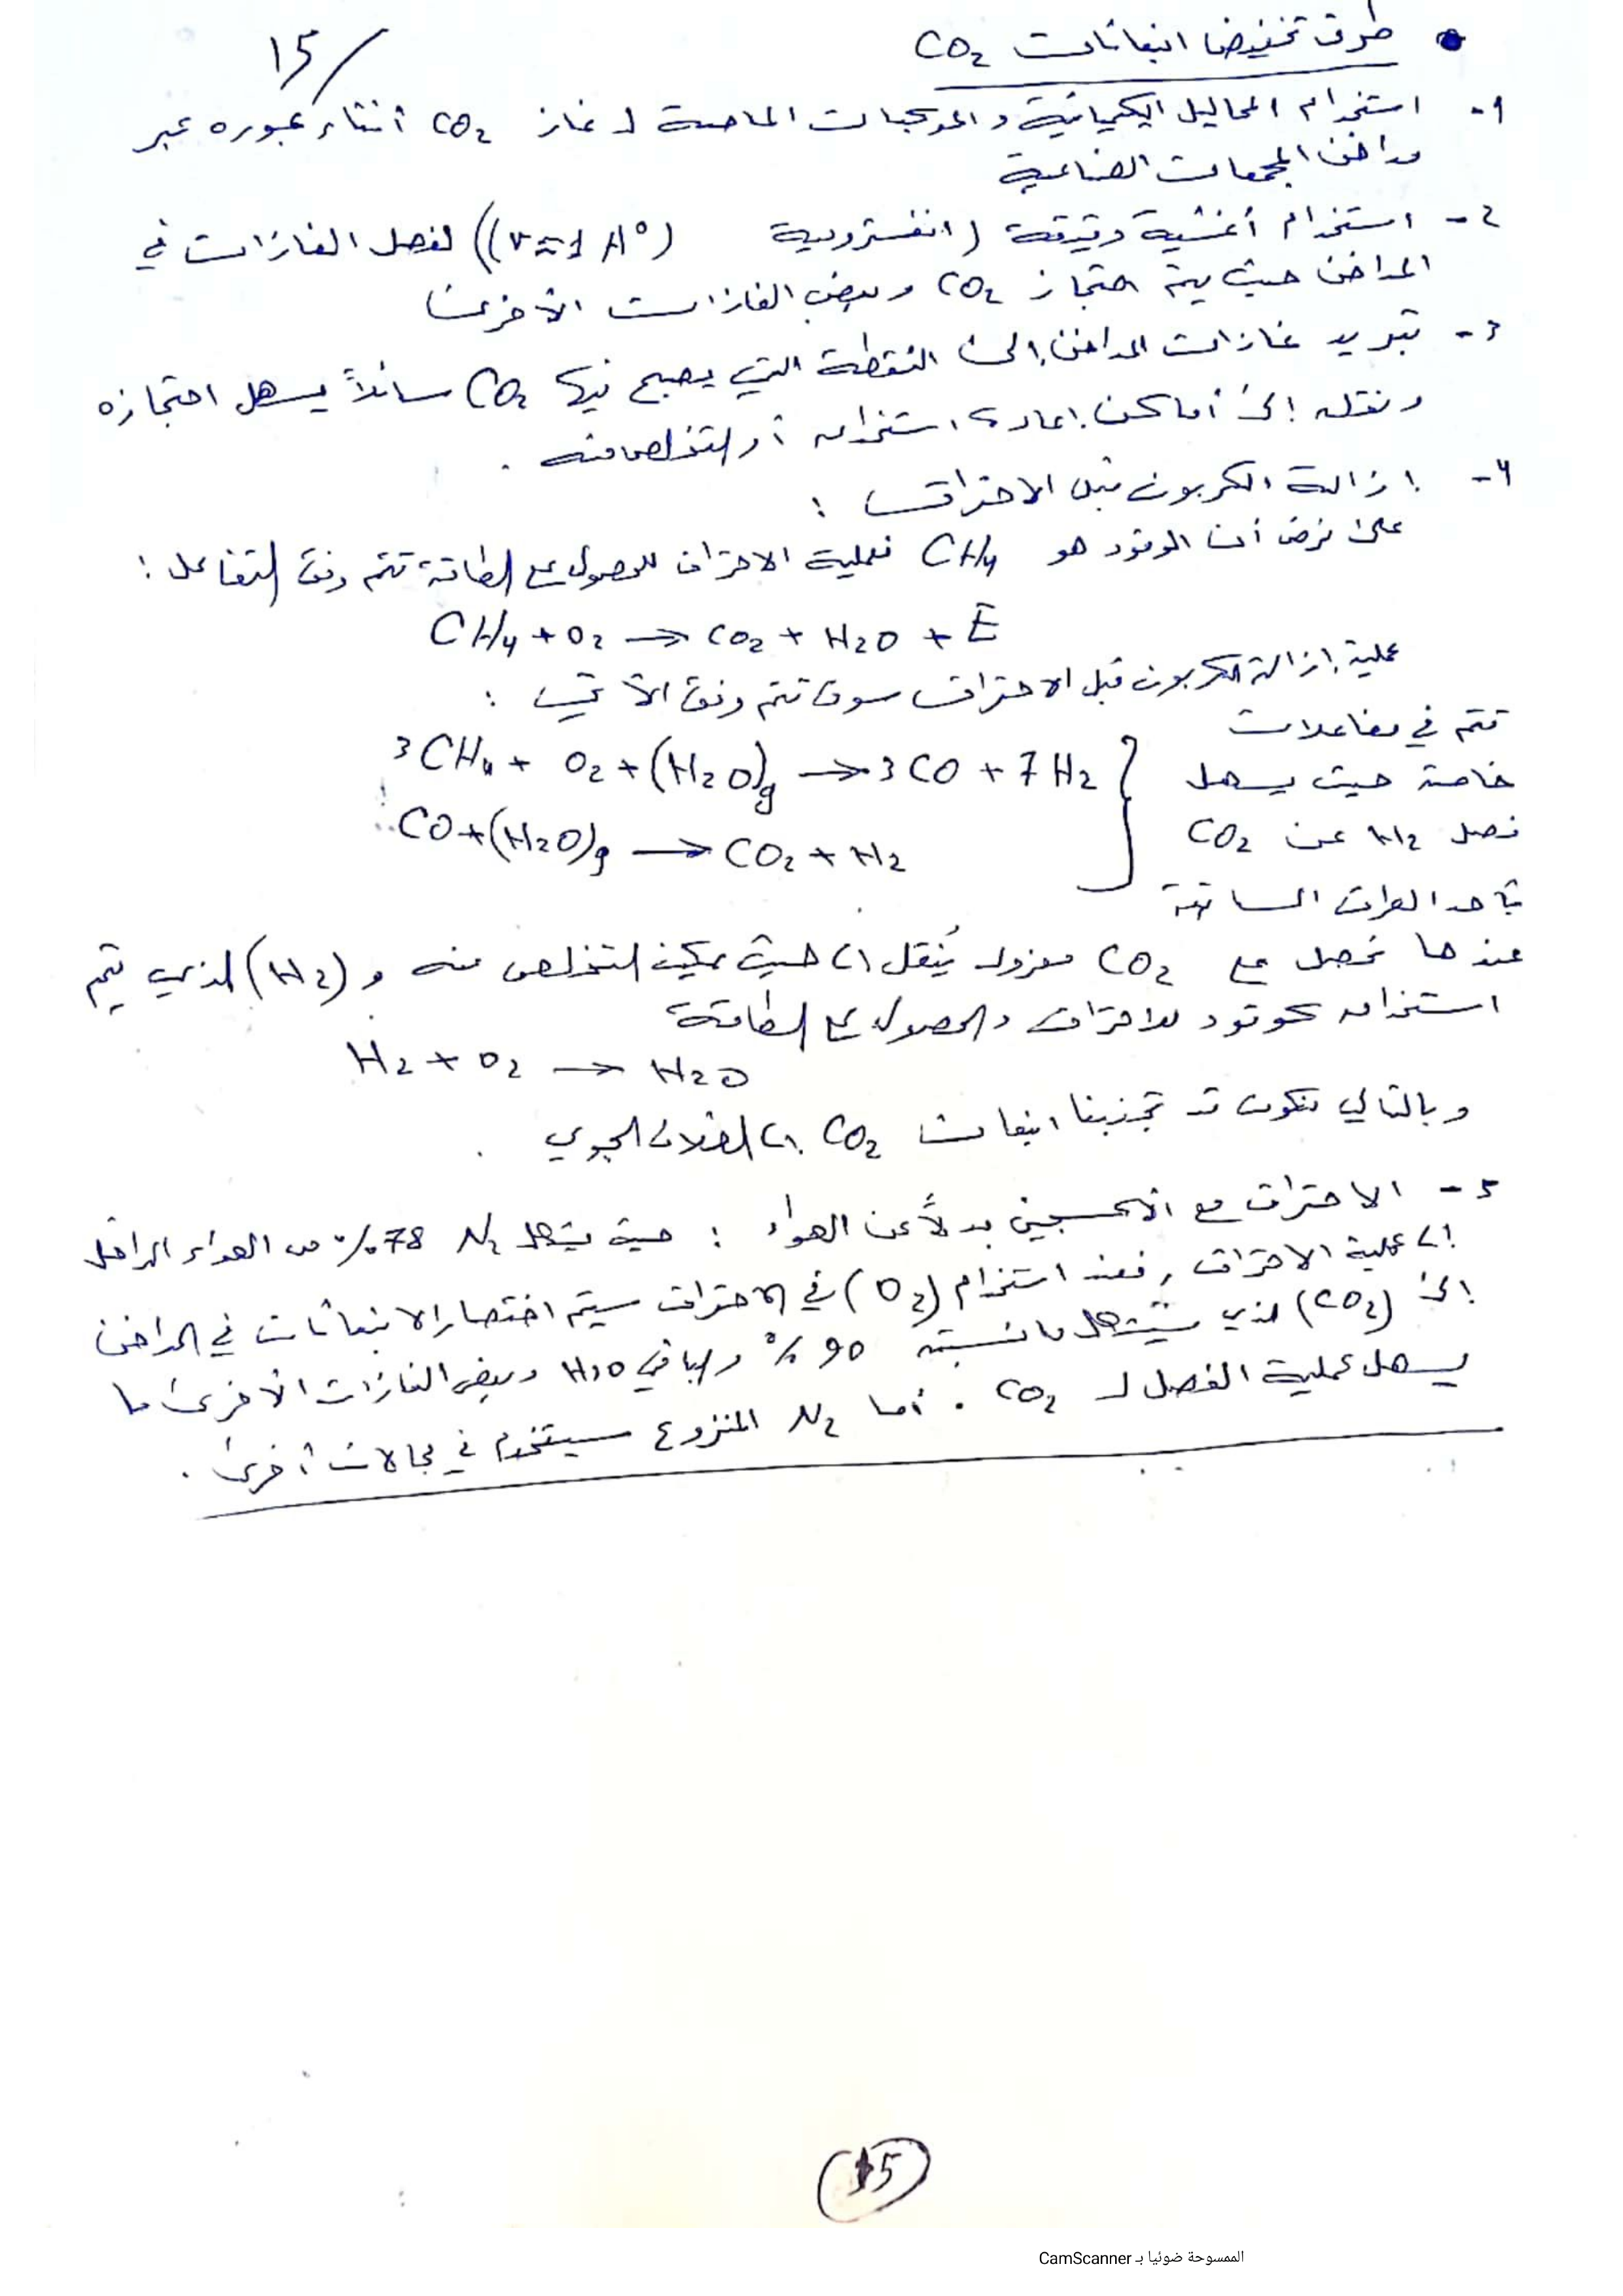 15/
• طرق تخفيض انبعاثات CO2
1- استخدام المحاليل الكيميائية والمركبات الماصة لـ غاز CO2 أثناء عبوره عبر
مداخن المجمعات الصناعية
2- استخدام أغشية دقيقة (انغسترومية (r ≈ 1 A°)) لفصل الغازات في
المداخن حيث يتم احتجاز CO2 وبعض الغازات الأخرى
3- تبريد غازات المداخن إلى النقطة التي يصبح فيها CO2 سائلاً يسهل احتجازه
ونقله إلى أماكن إعادة استخدامه أو التخلص منه .
4- إزالة الكربون قبل الاحتراق :
على فرض أن الوقود هو CH4 فعملية الاحتراق للحصول على الطاقة تتم وفق التفاعل :
CH4 + O2 → CO2 + H2O + E
عملية إزالة الكربون قبل الاحتراق سوف تتم وفق الآتي :
تتم في مفاعلات
3CH4 + O2 + (H2O)g → 3CO + 7H2
خاصة حيث يسهل
CO + (H2O)g → CO2 + H2
فصل H2 عن CO2
بأحد الطرق السابقة
عندها نحصل على CO2 معزول يُنقل إلى حيث يمكن التخلص منه و (H2) الذي يتم
استخدامه كوقود للاحتراق والحصول على الطاقة
H2 + O2 → H2O
وبالتالي نكون قد تجنبنا انبعاث CO2 إلى الغلاف الجوي .
5- الاحتراق مع الأكسجين بدلاً عن الهواء : حيث يشكل N2 78% من الهواء الداخل
إلى عملية الاحتراق , فعند استخدام (O2) في الاحتراق سيتم اختصار الانبعاثات في المداخن
إلى (CO2) الذي سيشكل ما نسبته 90 % والباقي H2O وبعض الغازات الأخرى ما
يسهل عملية الفصل لـ CO2 . أما N2 المنزوع سيستخدم في مجالات أخرى .
15
الممسوحة ضوئيا بـ CamScanner